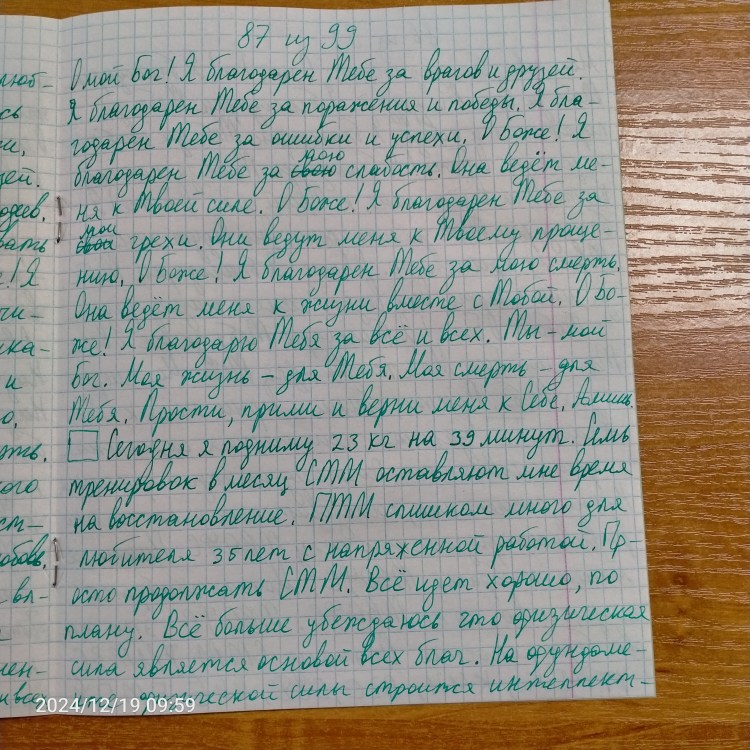 87 из 99
О мой Бог! Я благодарен Тебе за врагов и друзей.
Я благодарен Тебе за поражения и победы. Я бла-
годарен Тебе за ошибки и успехи. О Боже! Я
благодарен Тебе за свою мою слабость. Она ведёт ме-
ня к Твоей силе. О Боже! Я благодарен Тебе за
свои мои грехи. Они ведут меня к Твоему проще-
нию. О Боже! Я благодарен Тебе за мою смерть.
Она ведёт меня к жизни вместе с Тобой. О Бо-
же! Я благодарю Тебя за всё и всех. Ты – мой
Бог. Моя жизнь – для Тебя. Моя смерть – для
Тебя. Прости, прими и верни меня к Себе. Аминь.
Сегодня я подниму 23 кг на 39 минут. Семь
тренировок в месяц СТМ оставляют мне время
на восстановление. ПТМ слишком много для
любителя 35 лет с напряженной работой. Пр-
осто продолжать СТМ. Всё идет хорошо, по
плану. Всё больше убеждаюсь что физическая
сила является основой всех благ. На фундаме-
физической силы строится интеллект-
люб-
сь
ни,
зей.
одев.
вать
е! Я
чи-
ика-
и
о.
рть.
кого
ст-
юбовь.
вл-
ен-
2024/12/19 09:59